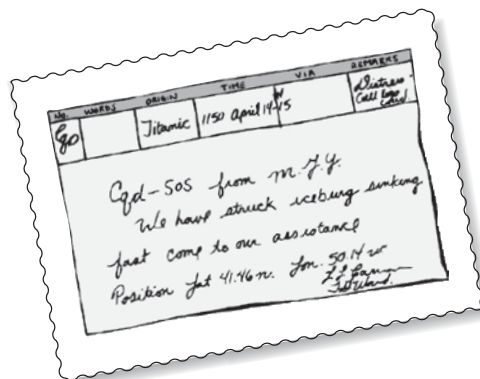 No. WORDS ORIGIN TIME VIA REMARKS
Titanic 1150 April 14-15 Distress
Call
Cqd - SOS from M.G.Y.
We have struck iceburg sinking
fast come to our assistance
Position Lat 41.46 n. Lon. 50.14 w